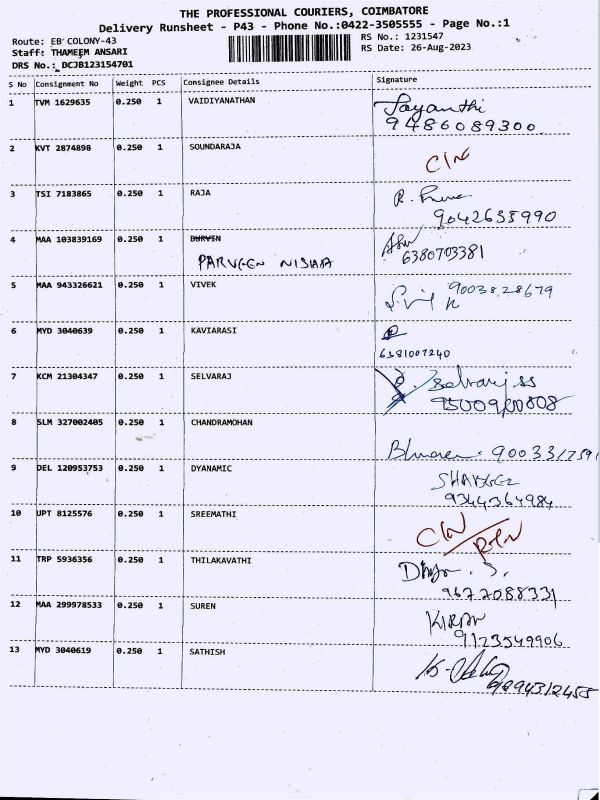 THE PROFESSIONAL COURIERS, COIMBATORE
Delivery Runsheet - P43 - Phone No.:0422-3505555 - Page No.:1
Route: EB COLONY-43
RS No.: 1231547
Staff: THAMEEM ANSARI
RS Date: 26-Aug-2023
DRS No.: DCJB123154701
S No Consignment No Weight PCS Consignee Details Signature
1 TVM 1629635 0.250 1 VAIDIYANATHAN Jayanthi
9486089300
2 KVT 2874898 0.250 1 SOUNDARAJA
C/N
3 TSI 7183865 0.250 1 RAJA
9042635990
4 MAA 103839169 0.250 1 DURVIN
PARVEEN NISHA 6380703381
5 MAA 943326621 0.250 1 VIVEK 9003828679
6 MYD 3040639 0.250 1 KAVIARASI
6381007240
7 KCM 21304347 0.250 1 SELVARAJ Selvaraj ss
8 SLM 327002405 0.250 1 CHANDRAMOHAN
9 DEL 120953753 0.250 1 DYANAMIC
9344364984
10 UPT 8125576 0.250 1 SREEMATHI
C/N
RTN
11 TRP 5936356 0.250 1 THILAKAVATHI
9677088331
12 MAA 299978533 0.250 1 SUREN KIRAN
9123549906
13 MYD 3040619 0.250 1 SATHISH
9894312455